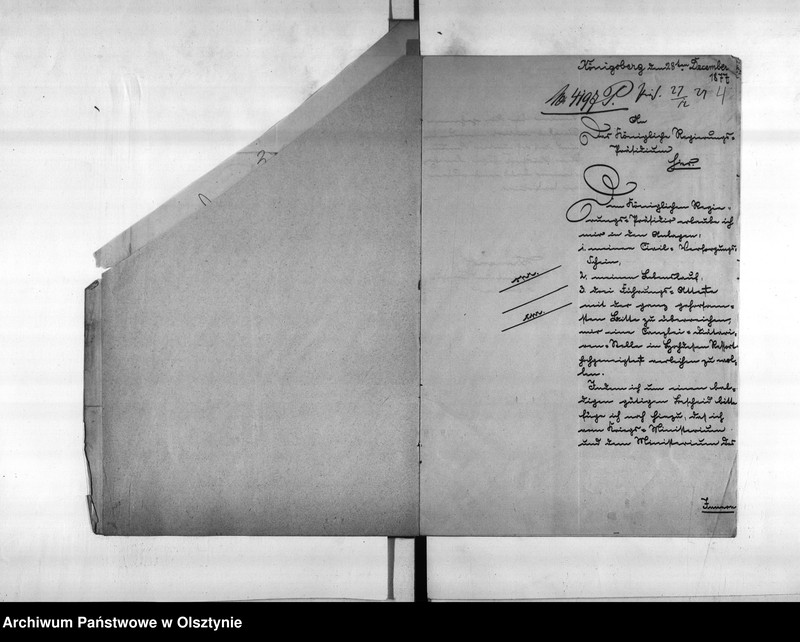 Königsberg den 28ten December
1877
No 4197 P. Präs. 27/12 77
An
Das Königliche Regierungs-
Präsidium
Hier
Dem Königlichen Regie-
rungs-Präsidio erlaube ich
mir in den Anlagen,
1. meinen Civil-Versorgungs-
Schein,
2. meinen Lebenslauf,
3. drei Führungs-Atteste
mit der ganz gehorsam-
sten Bitte zu überreichen,
mir eine Canzlei-Diätari-
en-Stelle im Ressort
hochgeneigtest verleihen zu wol-
len.
Indem ich um einen bal-
digen gütigen Bescheid bitte
füge ich noch hinzu, daß ich
vom Kriegs-Ministerium
und dem Ministerium des
Innern
Archiwum Państwowe w Olsztynie